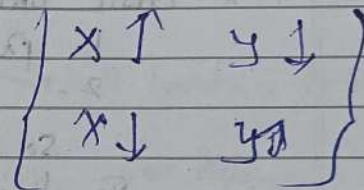 x ↑ y ↓
x ↓ y ↑